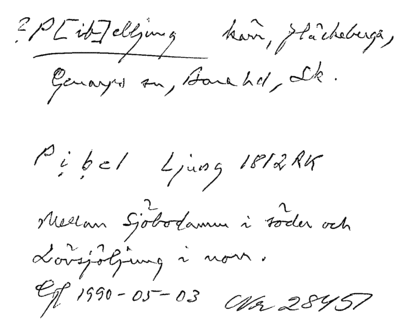 ? P[ib]elljung kärr, Häckeberga,
Genarps sn, Bara hd, Sk.
Pibel Ljung 1812 RK
Mellan Sjöbodamm i söder och
Lövsjöljung i norr.
1990-05-03 Nr 28457